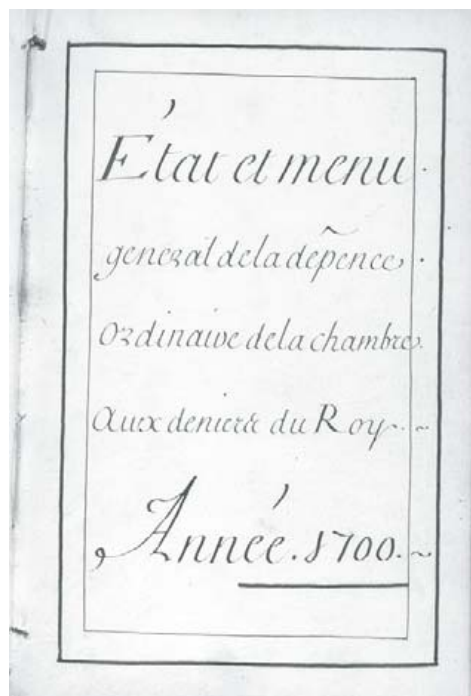 État et menu
general de la dépence
ordinaire de la chambre
aux deniers du Roy
Année. 1700.